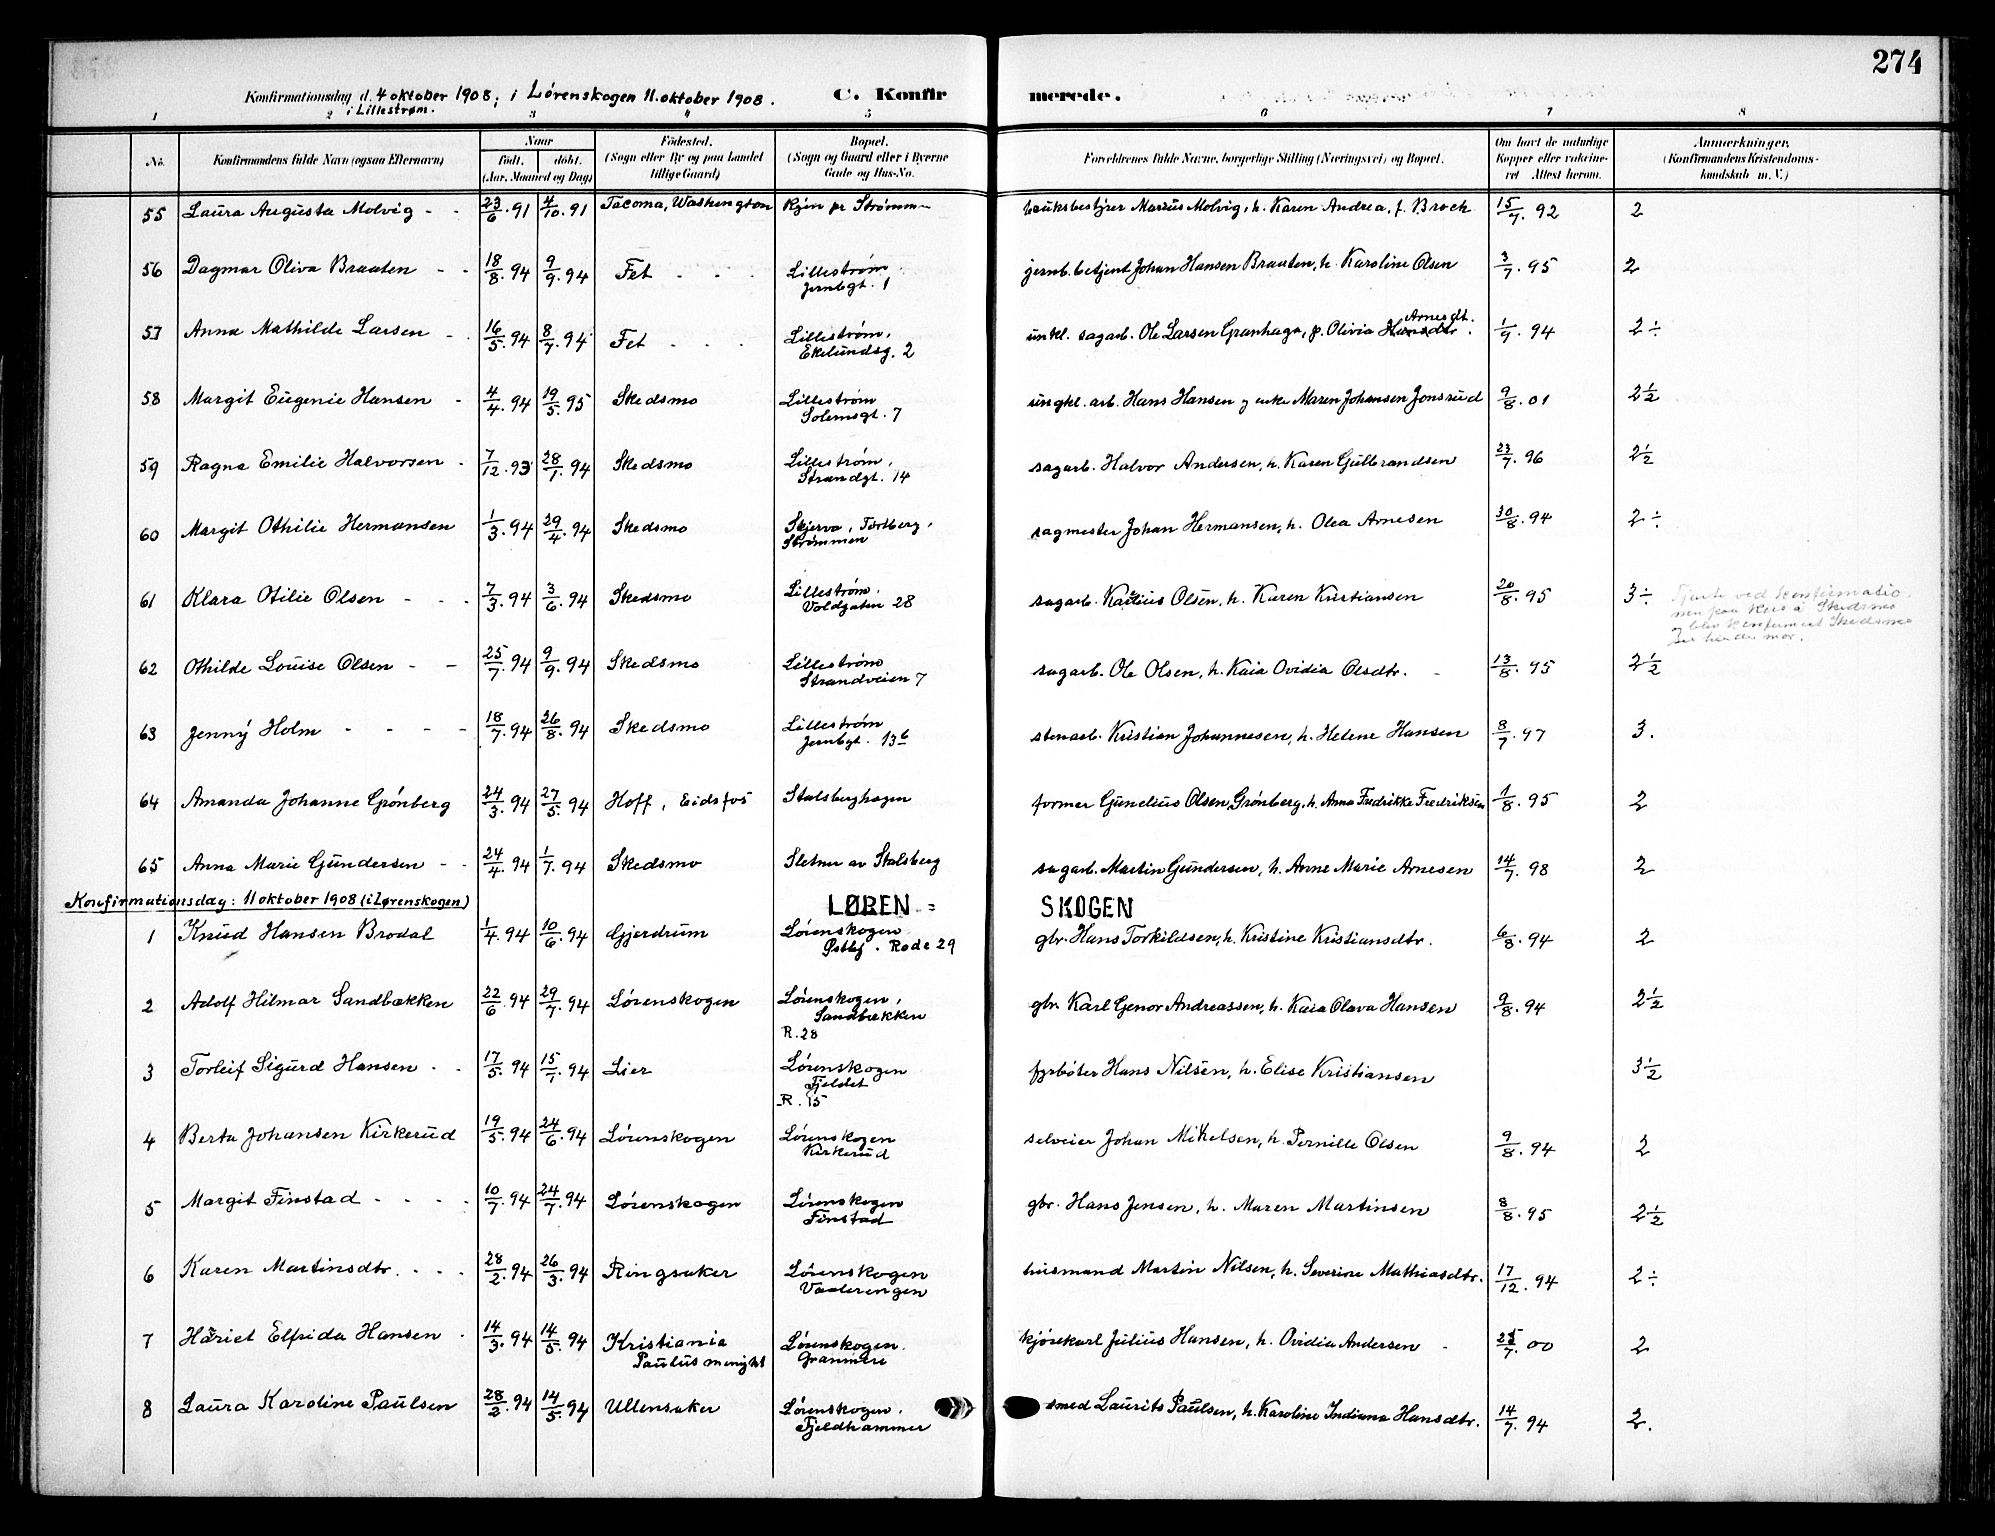 274
Konfirmationsdag d. 4 oktober 1908; i Lørenskogen 11. oktober 1908. C. Konfirmerede.
i Lillestrøm.
1 2 3 4 5 6 7 8
No. Konfirmandens fulde Navn (ogsaa Efternavn) Naar født. døbt. (Aar, Maaned og Dag) Fødested. (Sogn eller By og paa Landet tillige Gaard) Bopæl. (Sogn og Gaard eller i Byerne Gade og Hus-No. Forældrenes fulde Navne, borgerlige Stilling (Næringsvei) og Bopæl. Om havt de naturlige Kopper eller vakcineret Attest herom. Anmærkninger. (Konfirmandens Kristendomskundskab m. V.)
55 Laura Augusta Molvig - - 23/6. 91 4/10. 91 Tacoma, Washington Kjen pr Strømm- bruksbestyrer Marius Molvig, h. Karen Andrea, f. Brock 15/7. 92 2
56 Dagmar Oliva Braaten - - 18/8. 94 9/9. 94 Fet - - - Lillestrøm. jernb.betjent Johan Hansen Braaten, h. Karoline Olsen 3/7. 95 2
Jernbgt. 1
57 Anna Mathilde Larsen - - 16/5. 94 8/7. 94 Fet - - - Lillestrøm, unkl. sagarb. Ole Larsen Granhaga, p. Olivia Hansdtr. Arnesdt. 1/9. 94 2 ÷
Ekelundsg. 2
58 Margit Eugenie Hansen - 4/4. 94 19/5. 95 Skedsmo Lillestrøm ungkl. arb. Hans Hansen og enke Maren Johansen Jonsrud 9/8. 01 2½
Solemsgt. 7
59 Ragna Emilie Halvorsen - 7/12. 93 28/1. 94 Skedsmo Lillestrøm, sagarb. Halvor Andersen, h. Karen Gulbrandsen 23/7. 96 2½
Strandgt. 14
60 Margit Othilie Hermansen 1/3. 94 29/4. 94 Skedsmo Skjerva, Torsberg, sagmester Johan Hermansen, h. Olea Arnesen 30/8. 94 2 ÷
Strømmen
61 Klara Otilie Olsen - - - 7/3. 94 3/6. 94 Skedsmo Lillestrøm. sagarb. Karlius Olsen, h. Karen Kristiansen 20/8. 95 3 ÷ ved konfirmatio-
Voldgaten 28 nen paa Skedsmo
og blev konfirmert Skedsmo
mor.
62 Othilde Louise Olsen - - 25/7. 94 9/9. 94 Skedsmo Lillestrøm sagarb. Ole Olsen, h. Kaia Ovidia Olsdtr. - 13/8. 95 2½
Strandveien 7
63 Jenny Holm - - - - 18/7. 94 26/8. 94 Skedsmo Lillestrøm stenarb. Kristian Johannesen, h. Helene Hansen 8/7. 97 3.
Jernbgt. 13b
64 Amanda Johanne Grønberg 24/3. 94 27/5. 94 Hoff, Eidsfos Stalsberghagen former Gunelius Olsen Grønberg, h. Anna Fredrikke Fredriksen 1/8. 95 2
65 Anna Marie Gundersen - - 24/4. 94 1/7. 94 Skedsmo Sletner av Stalsberg sagarb. Martin Gundersen, h. Anne Marie Arnesen 14/7. 98 2
Konfirmationsdag: 11 oktober 1908 (i Lørenskogen) LØREN = SKOGEN
1 Knud Hansen Brodal 1/4. 94 10/6. 94 Gjerdrum Lørenskogen gbr. Hans Torkildsen, h. Kristine Kristiansdtr. 6/8. 94 2
Østbj. Rode 29
2 Adolf Hilmar Sandbækken 22/6. 94 29/7. 94 Lørenskogen Lørenskogen, gbr. Karl Genor Andreassen, h. Kaia Olava Hansen 9/8. 94 2½
Sandbækken
R. 28
3 Torleif Sigurd Hansen - - 17/5. 94 15/7. 94 Lier Lørenskogen fyrbøter Hans Nilsen, h. Elise Kristiansen 3½
Fjeldet
R. 15
4 Berta Johansen Kirkerud 19/5. 94 24/6. 94 Lørenskogen Lørenskogen selveier Johan Mikelsen, h. Pernille Olsen 9/8. 94 2
Kirkerud
5 Margit Finstad - - - - 10/7. 94 24/7. 94 Lørenskogen Lørenskogen gbr. Hans Jensen, h. Maren Martinsen 8/8. 95 2½
Finstad
6 Karen Martinsdtr. - - - 28/2. 94 26/3. 94 Ringsaker Lørenskogen husmand Martin Nilsen, h. Severine Mathiasdtr. 17/12. 94 2 ÷
Vaalerengen
7 Hariet Elfrida Hansen - 14/3. 94 14/5. 94 Kristiania Lørenskogen. kjørekarl Julius Hansen, h. Ovidia Andersen - 25/7. 00 2
Paulus menight Granmere
8 Laura Karoline Paulsen 28/2. 94 14/5. 94 Ullensaker Lørenskogen, smed Laurits Paulsen, h. Karoline Indiana Hansdtr. 14/7. 94 2.
Fjeldhammer